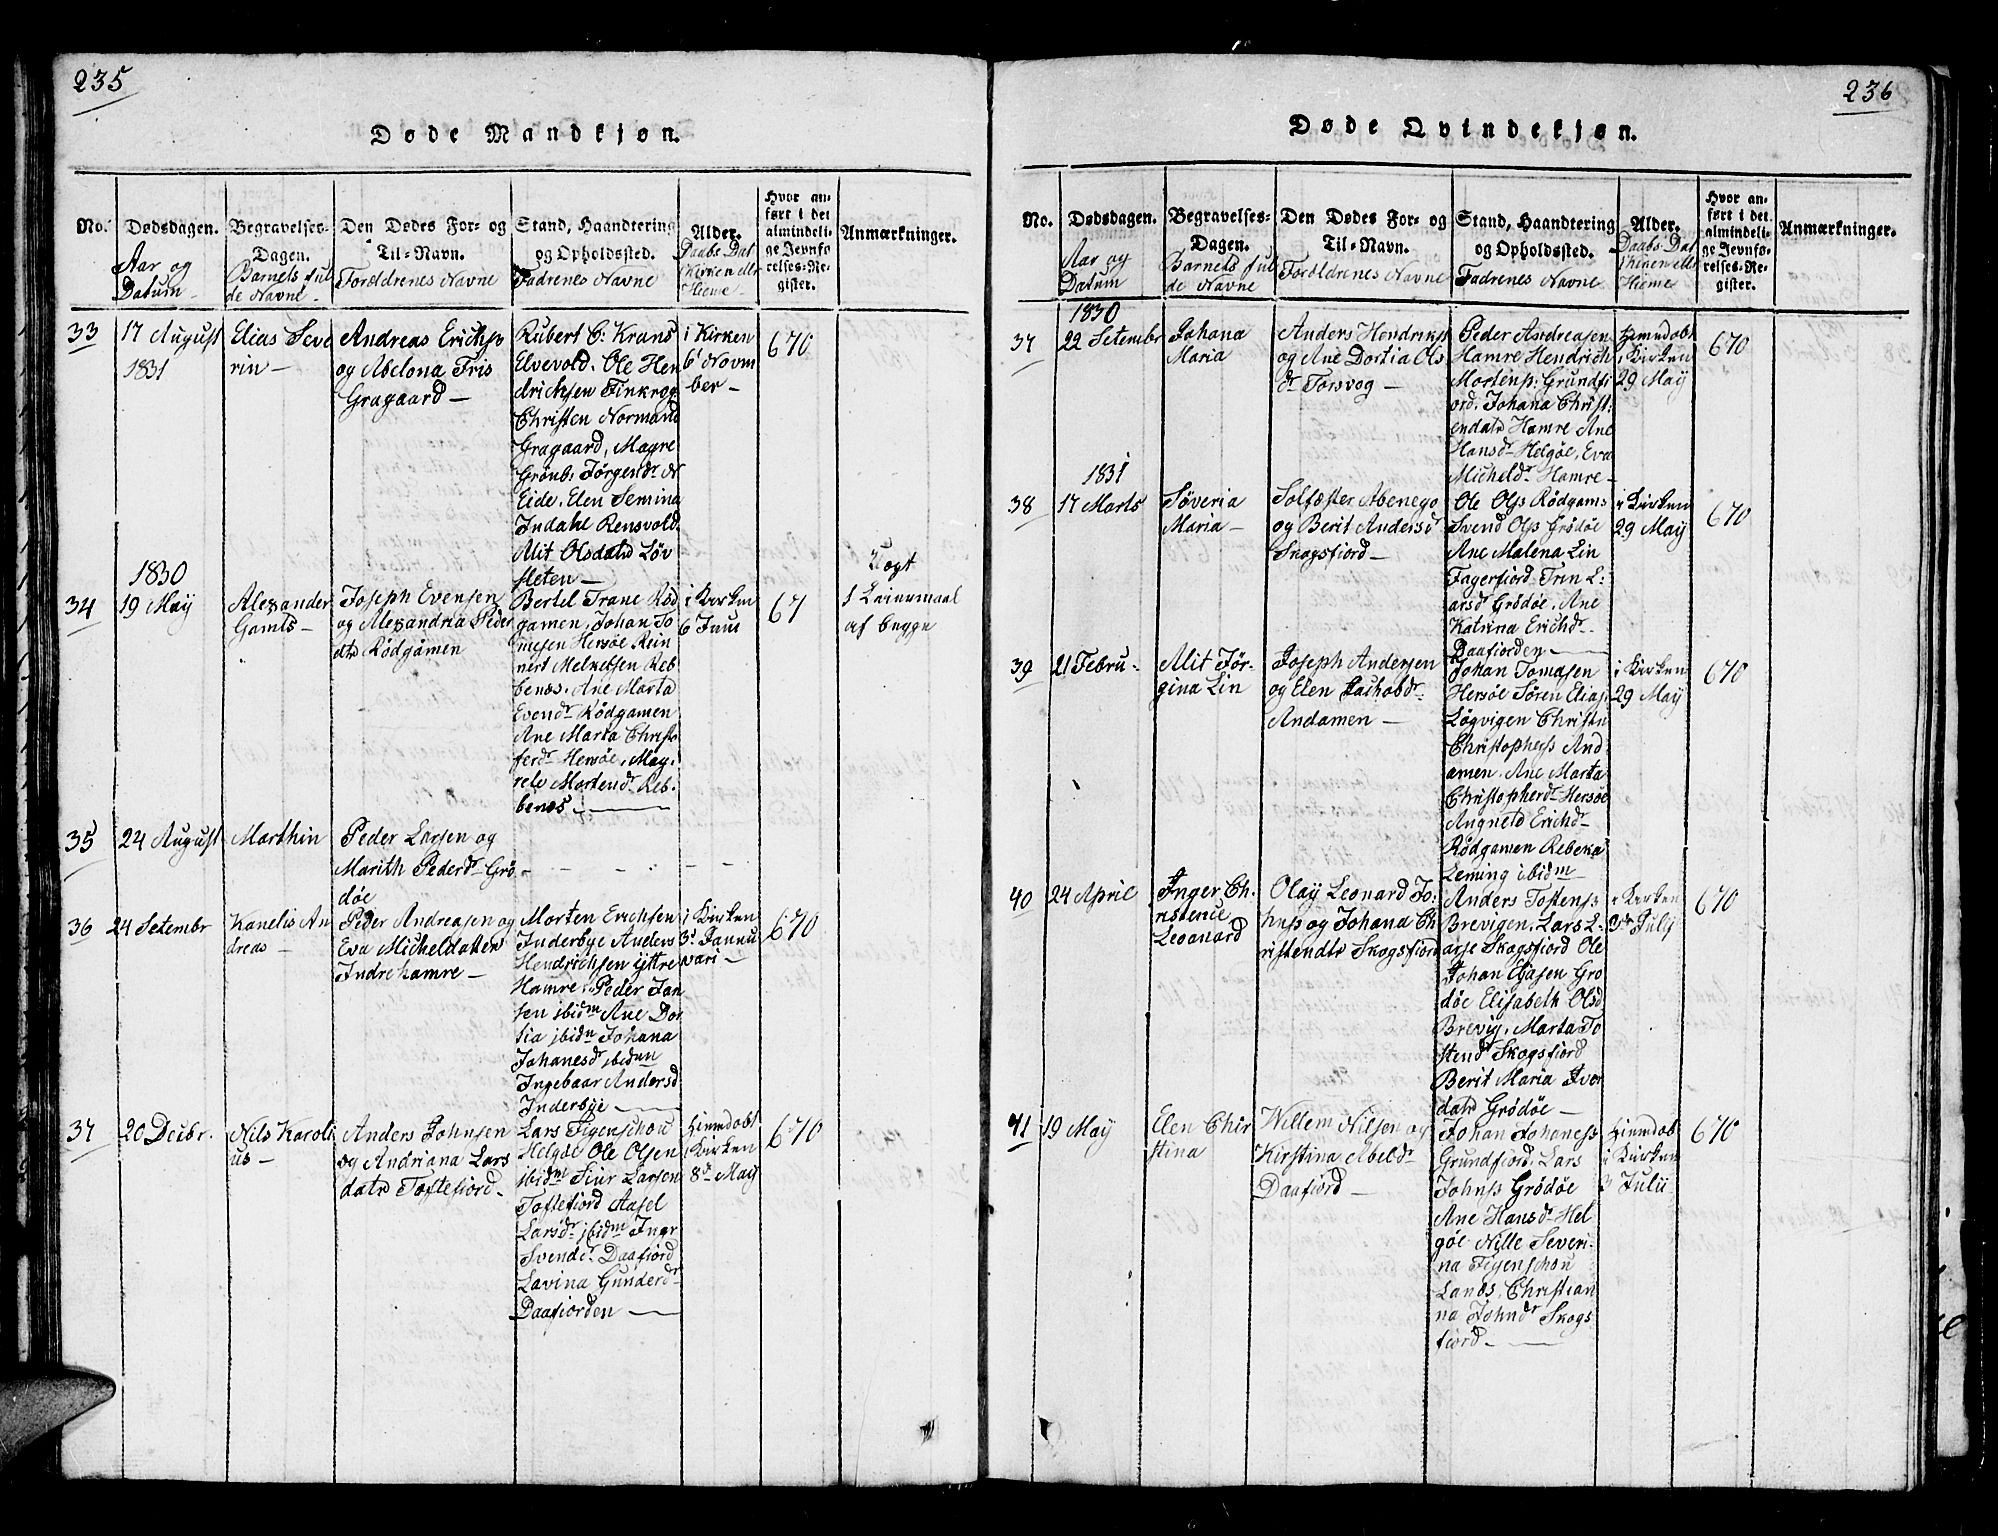 235
Døde Mandkjøn.
No.
Dødsdagen.
Aar og
Datum
Begravelses-
Dagen.
Barnets ful
de Navne
Den Dødes For- og
Til-Navn.
Foroldrenes Navne
Stand, Haandtering
og Opholdssted.
Fadrenes Navne
Alder.
Daabs Dat
Kirken eller
Hieme
Hvor an-
ført i det
almindeli-
ge Jevnfø-
relses-Re-
gister.
Anmærkninger.
33
17 August
1831
Elias Seve
rin
Andreas Erichss
og Abelona Fris
Gragaard
Rubert C: Krans
Elvevold. Ole Hen
drichsen Finkrog
Christen Normand
Gragaard, Magre
Grönb: Jørgensdr N
Eide. Elen Semina
Indahl Rensvold.
Alit Olsdatr Löv
sleten
i Kirken
6t Novm
ber
670
1830
34
19 May
Alexander
Gamts
Joseph Evensen
og Alexandria Peder
datr Rödgamen
Bertel Trane Röd
gamen, Johan To
mesen Hersøe Rein
nert Melkelsen Reb
benæs. Ane Marta
Evendr Rödgamen
Ane Marta Christo
ferdr Hersøe. May.
rele Mortendr Reb.
benæs
i Kirken
6 Juni
67
Uegt
1 Leiermaal
af begge
35
24 August
Marthin
Peder Larsen og
Marith Pederdr Grö
döe
36
24 Setembr
Kanelis An
dreas
Peder Andreasen og
Eva Micheldatter
Indrehamre
Morten Erichsen
Inderbye Anders
Hendrichsen yttre
Hamre. Peder Jan
sen ibidm Ane Dor
tia ibidm Johana
Johanesdr ibidm
Ingebaar Andersd
Inderbye
i Kirken
3d Jannu
wari
670
37
20 Decbr.
Nils Karoli
us
Anders Johnsen
og Andriana Lars
datr Toftefiord
Lars Figenschou
Helgøe Ole Olsen
ibidm Siur Larsen
Toftefiord Aasel
Larsdr ibidm Ingr
Svendr Daafiord
Lavina Gunderdr
Daafiorden
Hiemdobt
i Kirken
8d May
670
236
Døde Qvindekjøn.
No.
Dødsdagen.
Aar og
Datum
Begravelses-
Dagen.
Barnets ful
de Navne
Den Dødes For- og
Til-Navn.
Foroldrenes Navne
Stand, Haandtering
og Opholdssted.
Fadrenes Navne
Alder.
Daabs Dat
i Kirken eller
Hieme
Hvor an-
ført i det
almindeli-
ge Jevnfø-
relses-Re-
gister.
Anmærkninger.
1830
37
22 Setembr
Johana
Maria
Anders Hendrikss
og Ane Dortia Ols
dr Torsvog
Peder Andreasen
Hamre Hendrich
Mortens: Grundfi
ord. Johana Christ:
endatr Hamre Ane
Hansdr Helgøe, Eva
Micheldr Hamre
Hiemdobt
i Kirken
29 May
670
1831
38
17 Marts
Søveria
Maria
Solfæster Abenego
og Berit Andersdr
Skogsfiord
Ole Olss Rödgams
Svend Olss Grödöe
Ane Malena Lin
Fagerfiord. Trin L:
arsdr Grödöe. Ane
Katrina Erichdr
Daafiorden
i Kirken
29 May
670
39
21 Febru
Alit Jør-
gina Lin
Joseph Andersen
og Elen Jachobdr
Andamen
Johan Tomasen
Hersøe Søren Elias
Lögvigen Christn
Christopherss And
amen. Ane Marta
Christopherdr Hersøe
Angneta Erichdr
Rödgamen Rebeka
Leming ibidm
i Kirken
29 May
670
40
24 April
Inger Ch-
ristence
Leoanard
Olay Leonard Jo:
hnss og Johana Ch
ristendtr Skogsfiord
Anders Tostenss
Brevigen. Lars L.
arse Skogsfiord Ole
Johan Eliasen Gro
döe Elisabeth Olsd
Brevig. Marta To
stendr Skogsfiord
Berit Maria Iver
datr Grödöe
i Kirken
3de July
670
41
19 May
Elen Chir
stina
Willem Nilsen og
Kirstina Abeldr
Daafiord
Johan Johaness
Grundfiord. Lars
Johnss Grödöe
Ane Hansdr Hel
gøe Nille Severi-
na Figenschou
Lanes. Christian
na Johndr Skogs
fiord
Hiemdob
i Kirken
3 Julii
670